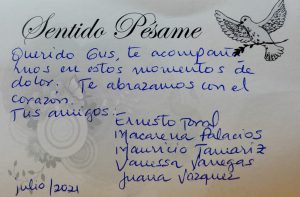 Sentido Pésame
Querido Gus, te acompaña
mos en estos momentos de
dolor. Te abrazamos con el
corazón.
Tus amigos:
Ernesto Toral
Macarena Palacios
Mauricio Tamariz
Vanessa Vanegas
Juana Vázquez
julio/2021